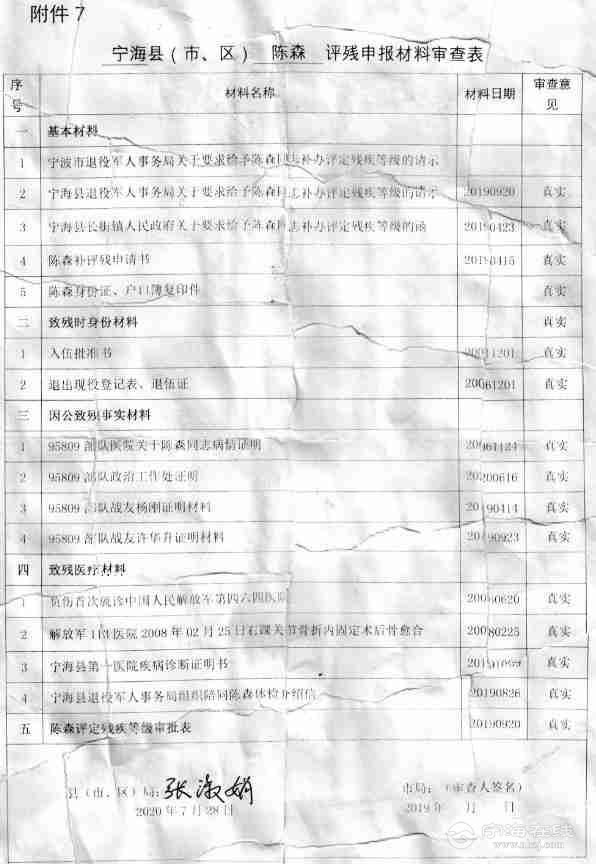 附件 7
宁海县（市、区） 陈森 评残申报材料审查表
序号 材料名称 材料日期 审查意见
一 基本材料
1 宁波市退役军人事务局关于要求给予陈森同志补办评定残疾等级的请示
2 宁海县退役军人事务局关于要求给予陈森同志补办评定残疾等级的请示 20190920 真实
3 宁海县长街镇人民政府关于要求给予陈森同志补办评定残疾等级的函 20190423 真实
4 陈森补评残申请书 20190415 真实
5 陈森身份证、户口簿复印件 真实
二 致残时身份材料 真实
1 入伍批准书 真实
2 退出现役登记表、退伍证 20061201 真实
三 因公致残事实材料
1 95809 部队医院关于陈森同志病情证明 20061124 真实
2 95809 部队政治工作处证明 20200616 真实
3 95809 部队战友杨刚证明材料 20190414 真实
4 95809 部队战友许华升证明材料 20190923 真实
四 致残医疗材料
1 负伤首次就诊中国人民解放军第四六四医院 真实
2 解放军 医院 2008 年 02 月 25 日右踝关节骨折内固定术后骨愈合 20080225 真实
3 宁海县第一医院疾病诊断证明书 真实
4 宁海县退役军人事务局组织陪同陈森体检介绍信 20190826 真实
五 陈森评定残疾等级审批表 20190920 真实
县（市、区）局：张淑娟 市局：（审查人签名）
2020 年 7 月 28 日 2019 年 月 日
宁海在线
www.nhzj.com